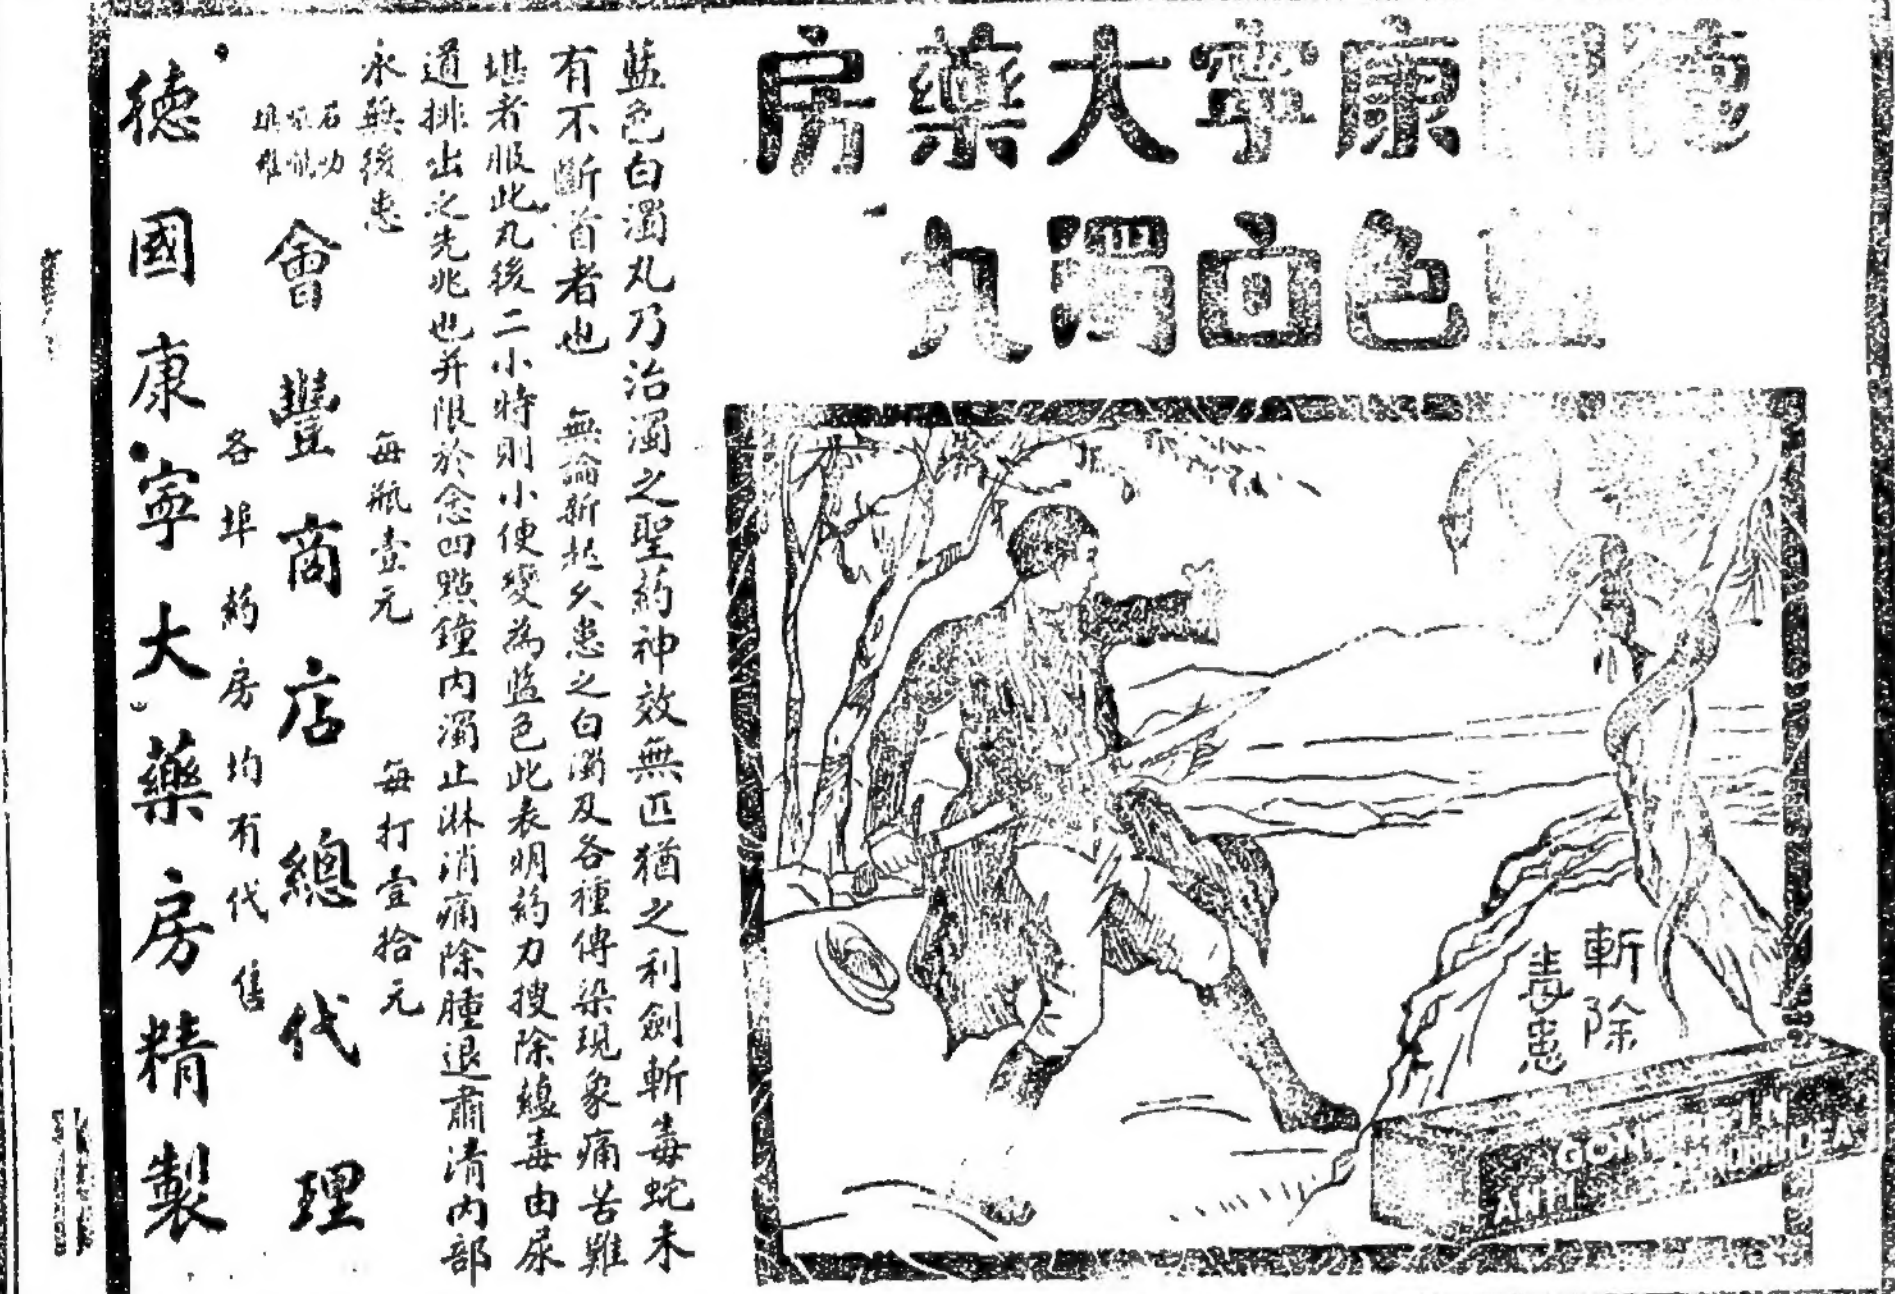 德國康寧大藥房
藍色白濁丸
藍色白濁丸乃治濁之聖葯神效無匹猶之利劍斬毒蛇未
有不斷首者也 無論新起久患之白濁及各種傳染現象痛苦難
堪者服此丸後二小時則小便變為藍色此表明葯力搜除蘊毒由尿
道排出之先兆也并限於念四點鐘內濁止淋消痛除腫退肅清內部
永無後患 每瓶壹元 每打壹拾元
石叻
會豐商店總代理
各埠葯房均有代售
德國康寧大藥房精製
斬除
毒患
ANTI